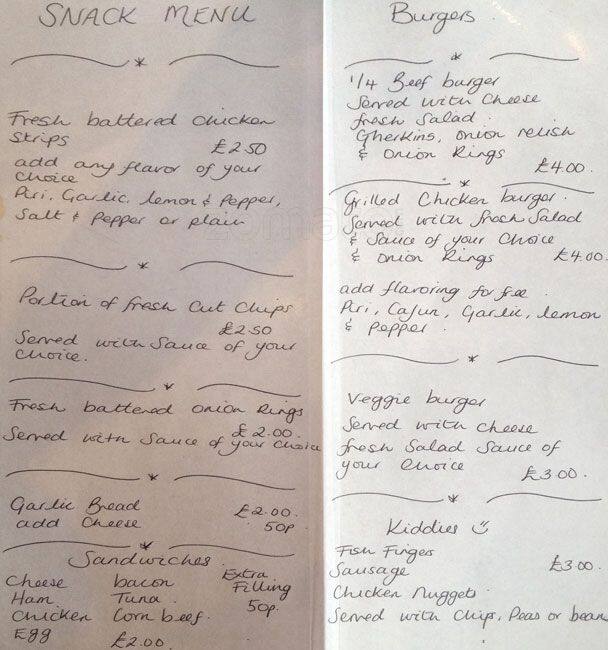 SNACK MENU
Fresh battered chicken
Strips £2.50
add any flavor of your
choice
Piri, Garlic, lemon & Pepper,
Salt & Pepper or plain
Portion of fresh cut chips
£2.50
Served with Sauce of your
choice.
Fresh battered onion Rings
£2.00.
Served with Sauce of your choice
Garlic Bread £2.00.
add Cheese 50p
Sandwiches
Cheese bacon Extra
Ham Tuna Filling
Chicken Corn beef. 50p.
Egg £2.00.
Burgers
1/4 Beef burger
Served with Cheese
fresh Salad.
Gherkins, onion relish
& Onion Rings
£4.00.
Grilled Chicken burger.
Served with fresh Salad
& Sauce of your Choice
& onion Rings £4.00.
add flavoring for free.
Piri, Cajun, Garlic, lemon
& Pepper.
Veggie burger
Served with cheese
fresh Salad Sauce of
your Choice
£3.00.
Kiddies
Fish Fingers
Sausage £3.00.
Chicken Nuggets.
Served with Chips, Peas or bean